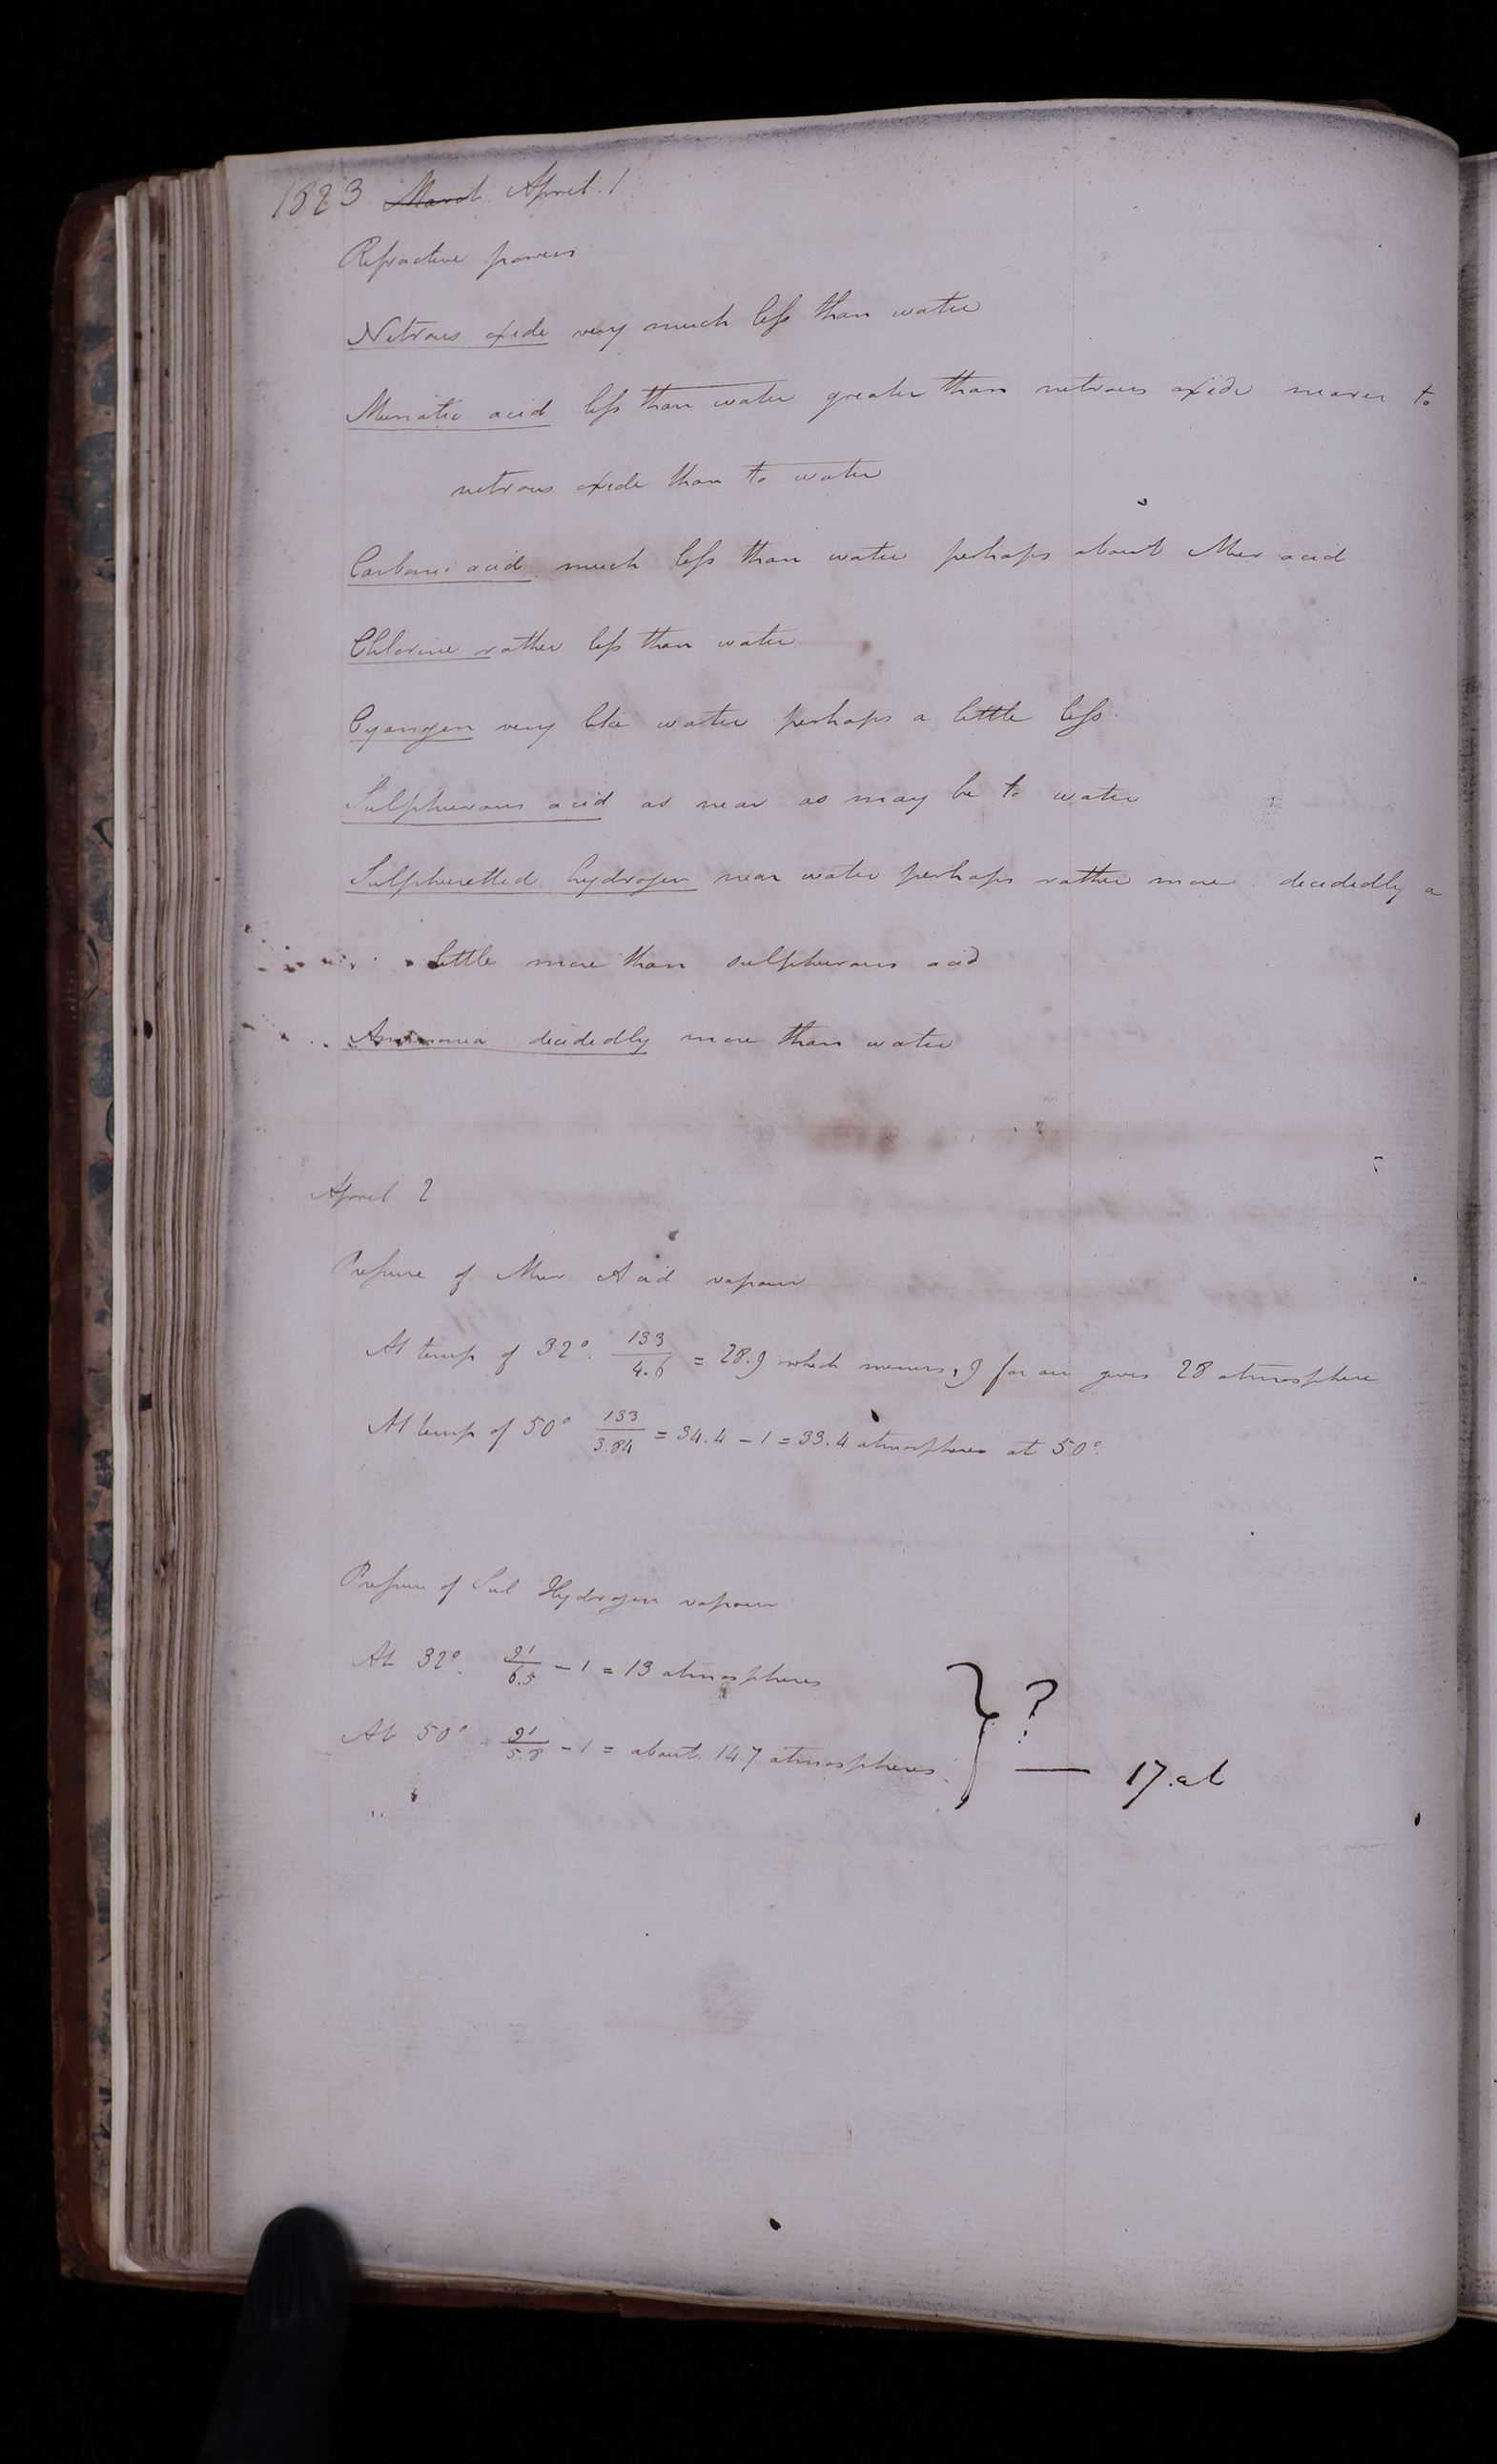 1823 March April 1
Refractive powers
Nitrous oxide very much less than water
Muriatic acid less than water greater than nitrous oxide nearer to
nitrous oxide than to water
Carbonic acid much less than water perhaps about Mur acid
Chlorine rather less than water
Cyanogen very like water perhaps a little less
Sulphurous acid as near as may be to water
Sulphuretted hydrogen near water perhaps rather more decidedly a
little more than sulphurous acid
Ammonia decidedly more than water
April 2
Pressure of Mur Acid vapour
At temp of 32°. 133/4.6 = 28.9 which minus .9 for air gives 28 atmosphere
At temp of 50° 133/3.84 = 34.4 - 1 = 33.4 atmospheres at 50°.
Pressure of Sul Hydrogen vapour
At 32°. 91/6.5 - 1 = 13 atmospheres
At 50° 91/5.8 - 1 = about 14.7 atmospheres } ? — 17.at